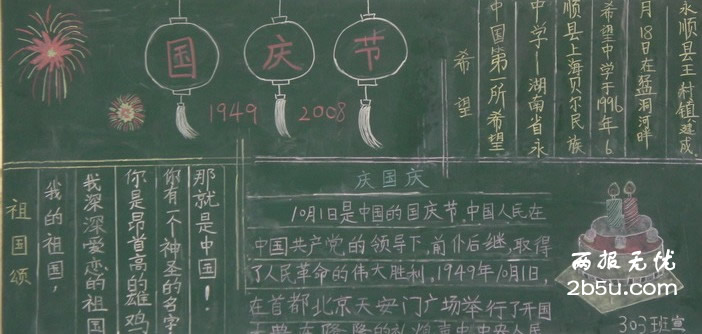 国庆节
1949 2008
希望
中国第一所希望
中学—湖南省永
顺县上海贝尔民族
希望中学于1996年6
月18日在猛洞河畔
永顺县王村镇建成
祖国颂
我的祖国，
我深深爱恋的祖国
你是昂首高的雄鸡
你有一个神圣的名字
那就是中国！
庆国庆
10月1日是中国的国庆节，中国人民在
中国共产党的领导下，前仆后继，取得
了人民革命的伟大胜利，1949年10月1日，
在首都北京天安门广场举行了开国
303班宣
两报无忧
2b5u.com